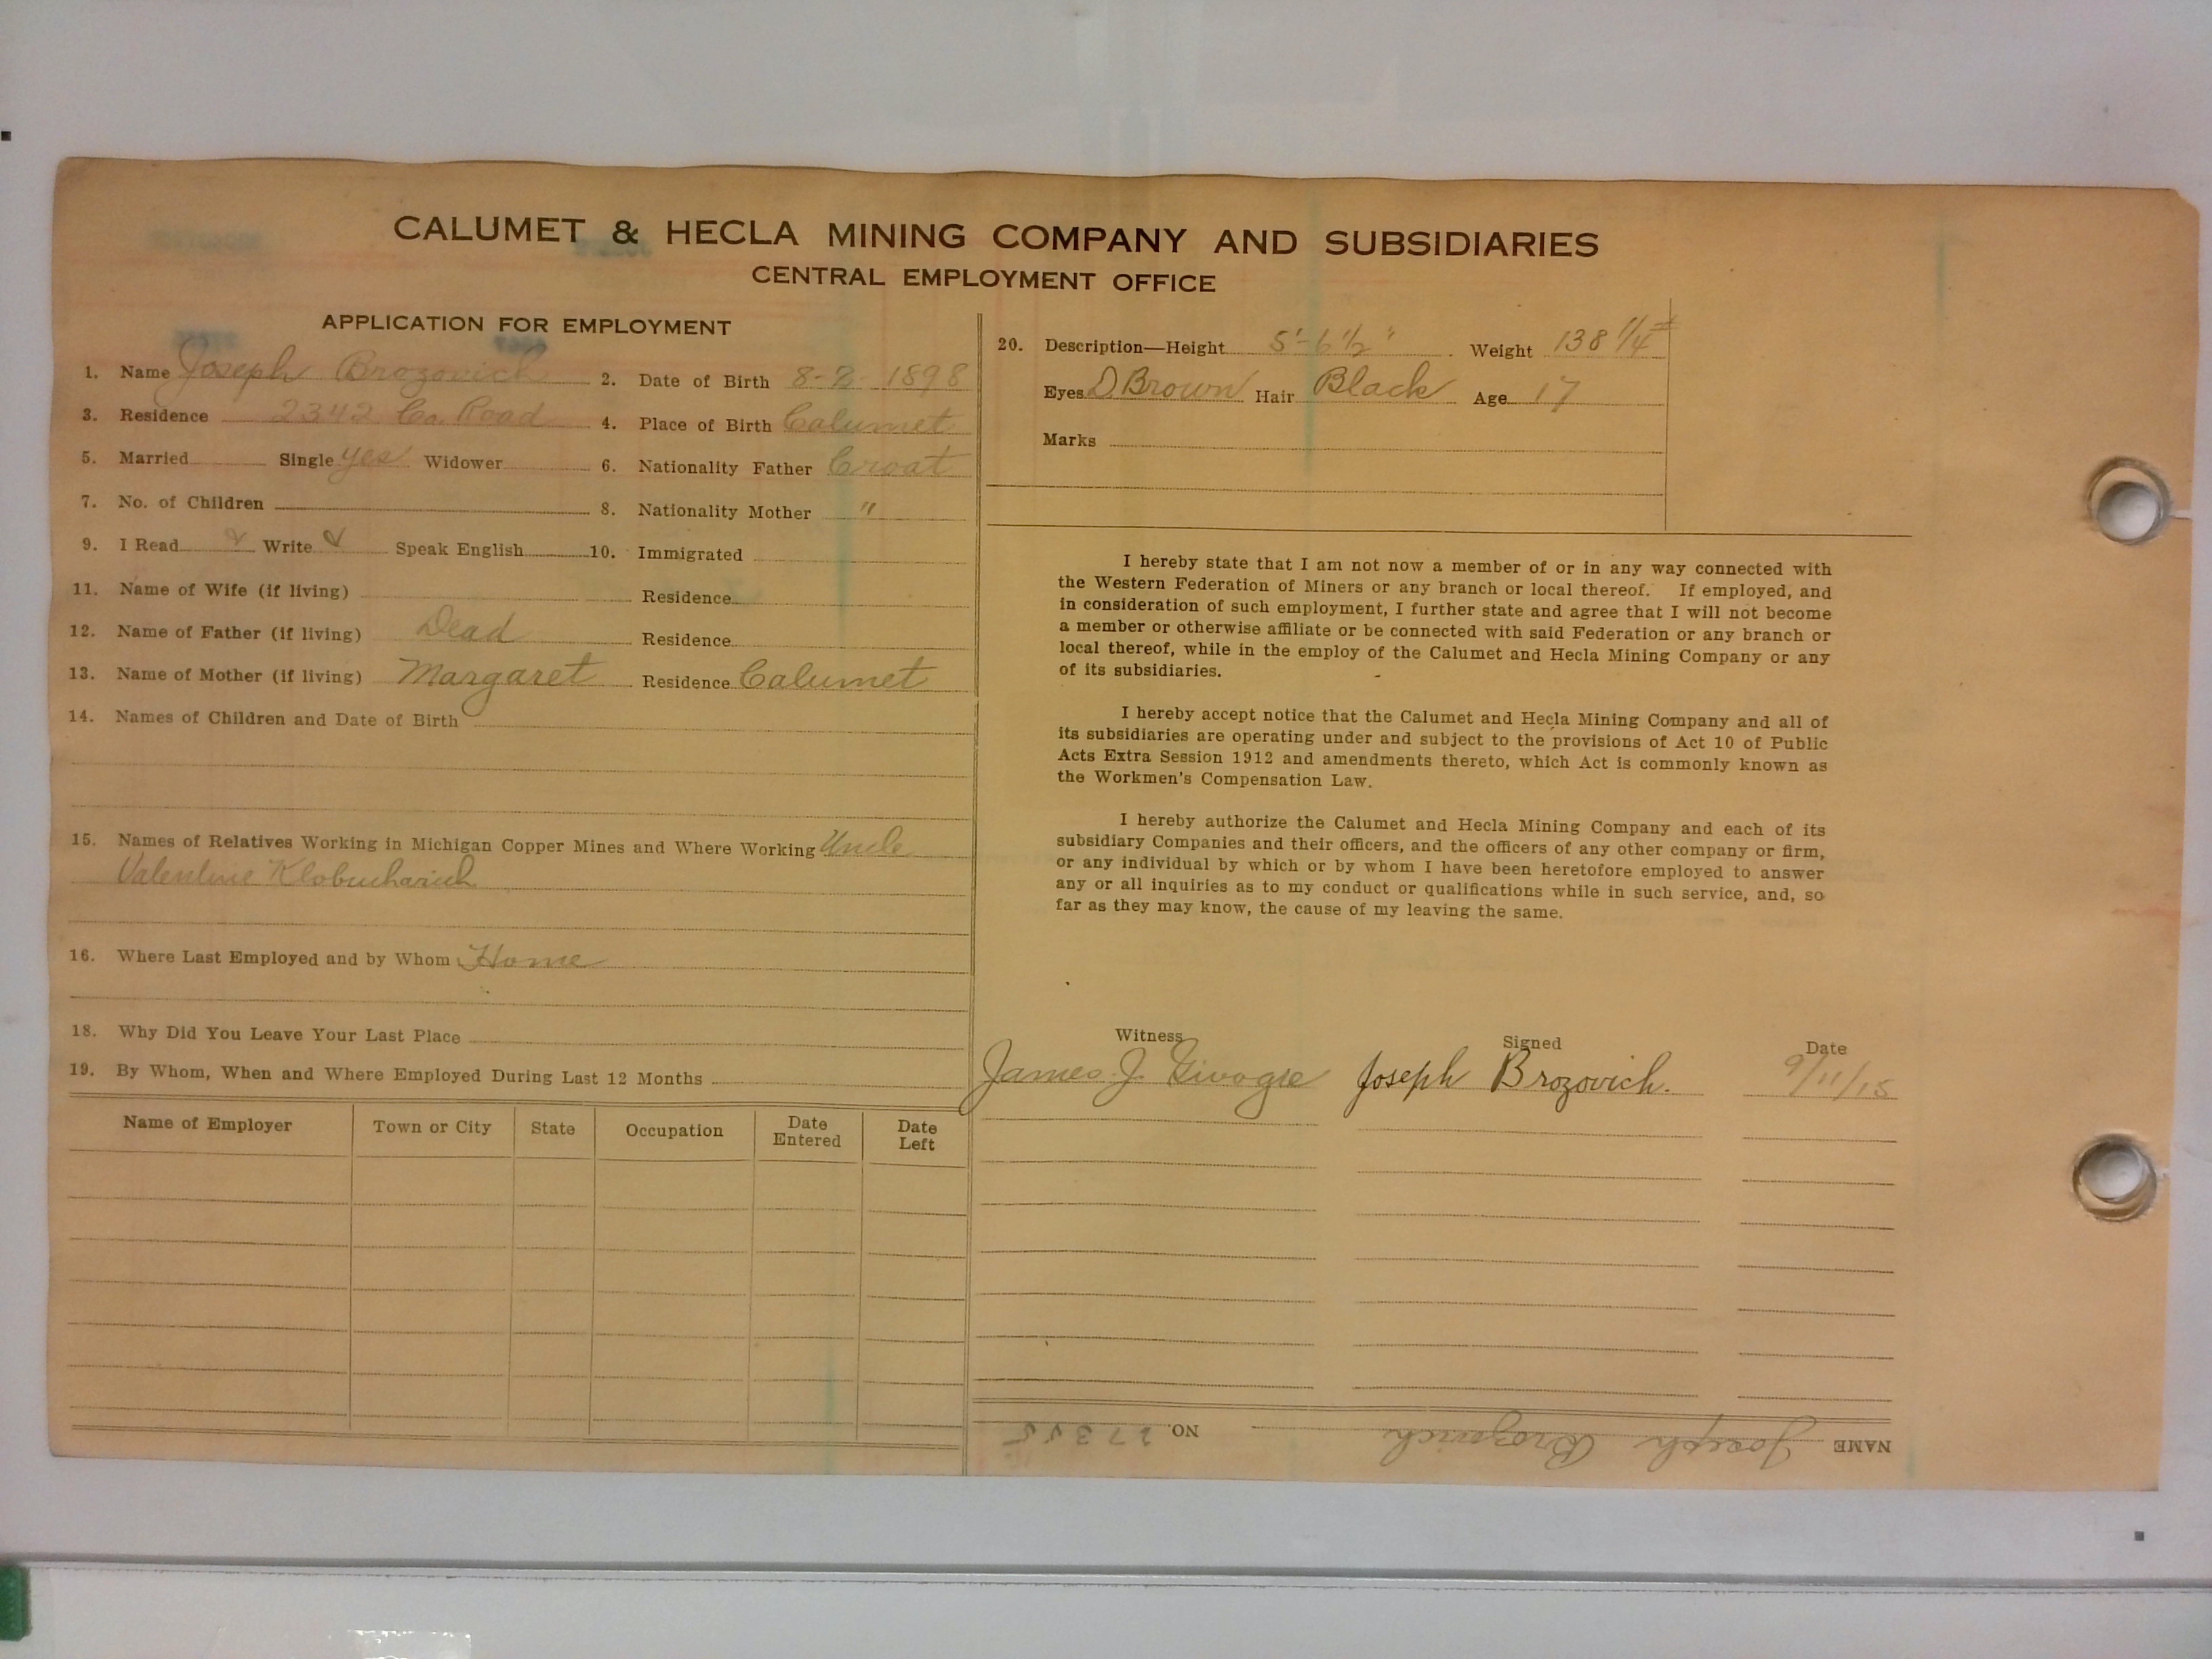 CALUMET & HECLA MINING COMPANY AND SUBSIDIARIES
CENTRAL EMPLOYMENT OFFICE
APPLICATION FOR EMPLOYMENT
1. Name Joseph Brozovich 2. Date of Birth 8-2-1898
3. Residence 2342 Co. Road 4. Place of Birth Calumet
5. Married Single yes Widower 6. Nationality Father Croat
7. No. of Children 8. Nationality Mother "
9. I Read Write Speak English 10. Immigrated
11. Name of Wife (if living) Residence
12. Name of Father (if living) Dead Residence
13. Name of Mother (if living) Margaret Residence Calumet
14. Names of Children and Date of Birth
15. Names of Relatives Working in Michigan Copper Mines and Where Working Uncle
Valentine Klobucharich
16. Where Last Employed and by Whom Home
18. Why Did You Leave Your Last Place
19. By Whom, When and Where Employed During Last 12 Months
Name of Employer Town or City State Occupation Date Entered Date Left
20. Description—Height 5'-6 1/2" Weight 138 1/4 #
Eyes D. Brown Hair Black Age 17
Marks
I hereby state that I am not now a member of or in any way connected with
the Western Federation of Miners or any branch or local thereof. If employed, and
in consideration of such employment, I further state and agree that I will not become
a member or otherwise affiliate or be connected with said Federation or any branch or
local thereof, while in the employ of the Calumet and Hecla Mining Company or any
of its subsidiaries.
I hereby accept notice that the Calumet and Hecla Mining Company and all of
its subsidiaries are operating under and subject to the provisions of Act 10 of Public
Acts Extra Session 1912 and amendments thereto, which Act is commonly known as
the Workmen's Compensation Law.
I hereby authorize the Calumet and Hecla Mining Company and each of its
subsidiary Companies and their officers, and the officers of any other company or firm,
or any individual by which or by whom I have been heretofore employed to answer
any or all inquiries as to my conduct or qualifications while in such service, and, so
far as they may know, the cause of my leaving the same.
Witness Signed Date
James J. Joseph Brozovich. 9/11/15
NAME Joseph Brozovich NO. 27355